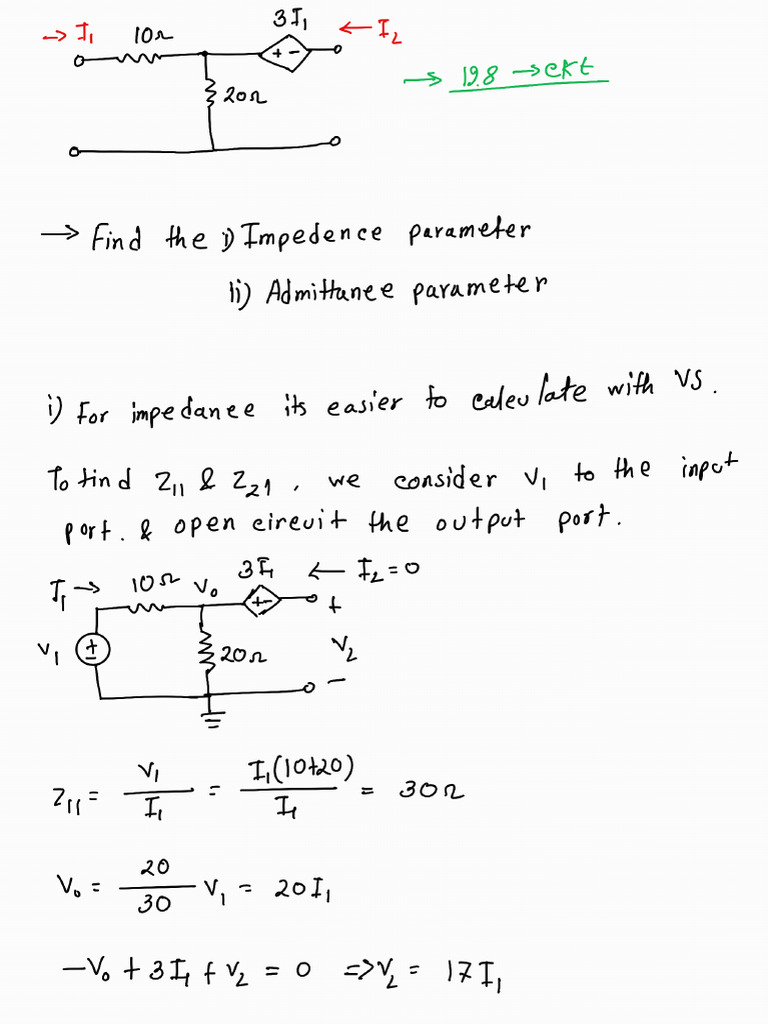 → I₁ 10Ω 3I₁ ← I₂
+ -
20Ω
→ 19.8 → ckt
→ Find the i) Impedence parameter
ii) Admittance parameter
i) For impedance its easier to calculate with VS.
To find Z₁₁ & Z₂₁, we consider V₁ to the input
port. & open circuit the output port.
I₁ → 10Ω V₀ 3I₁ ← I₂ = 0
+ - +
V₁ + - 20Ω V₂
-
Z₁₁ = V₁ / I₁ = I₁(10+20) / I₁ = 30Ω
V₀ = 20 / 30 V₁ = 20I₁
-V₀ + 3I₁ + V₂ = 0 => V₂ = 17I₁